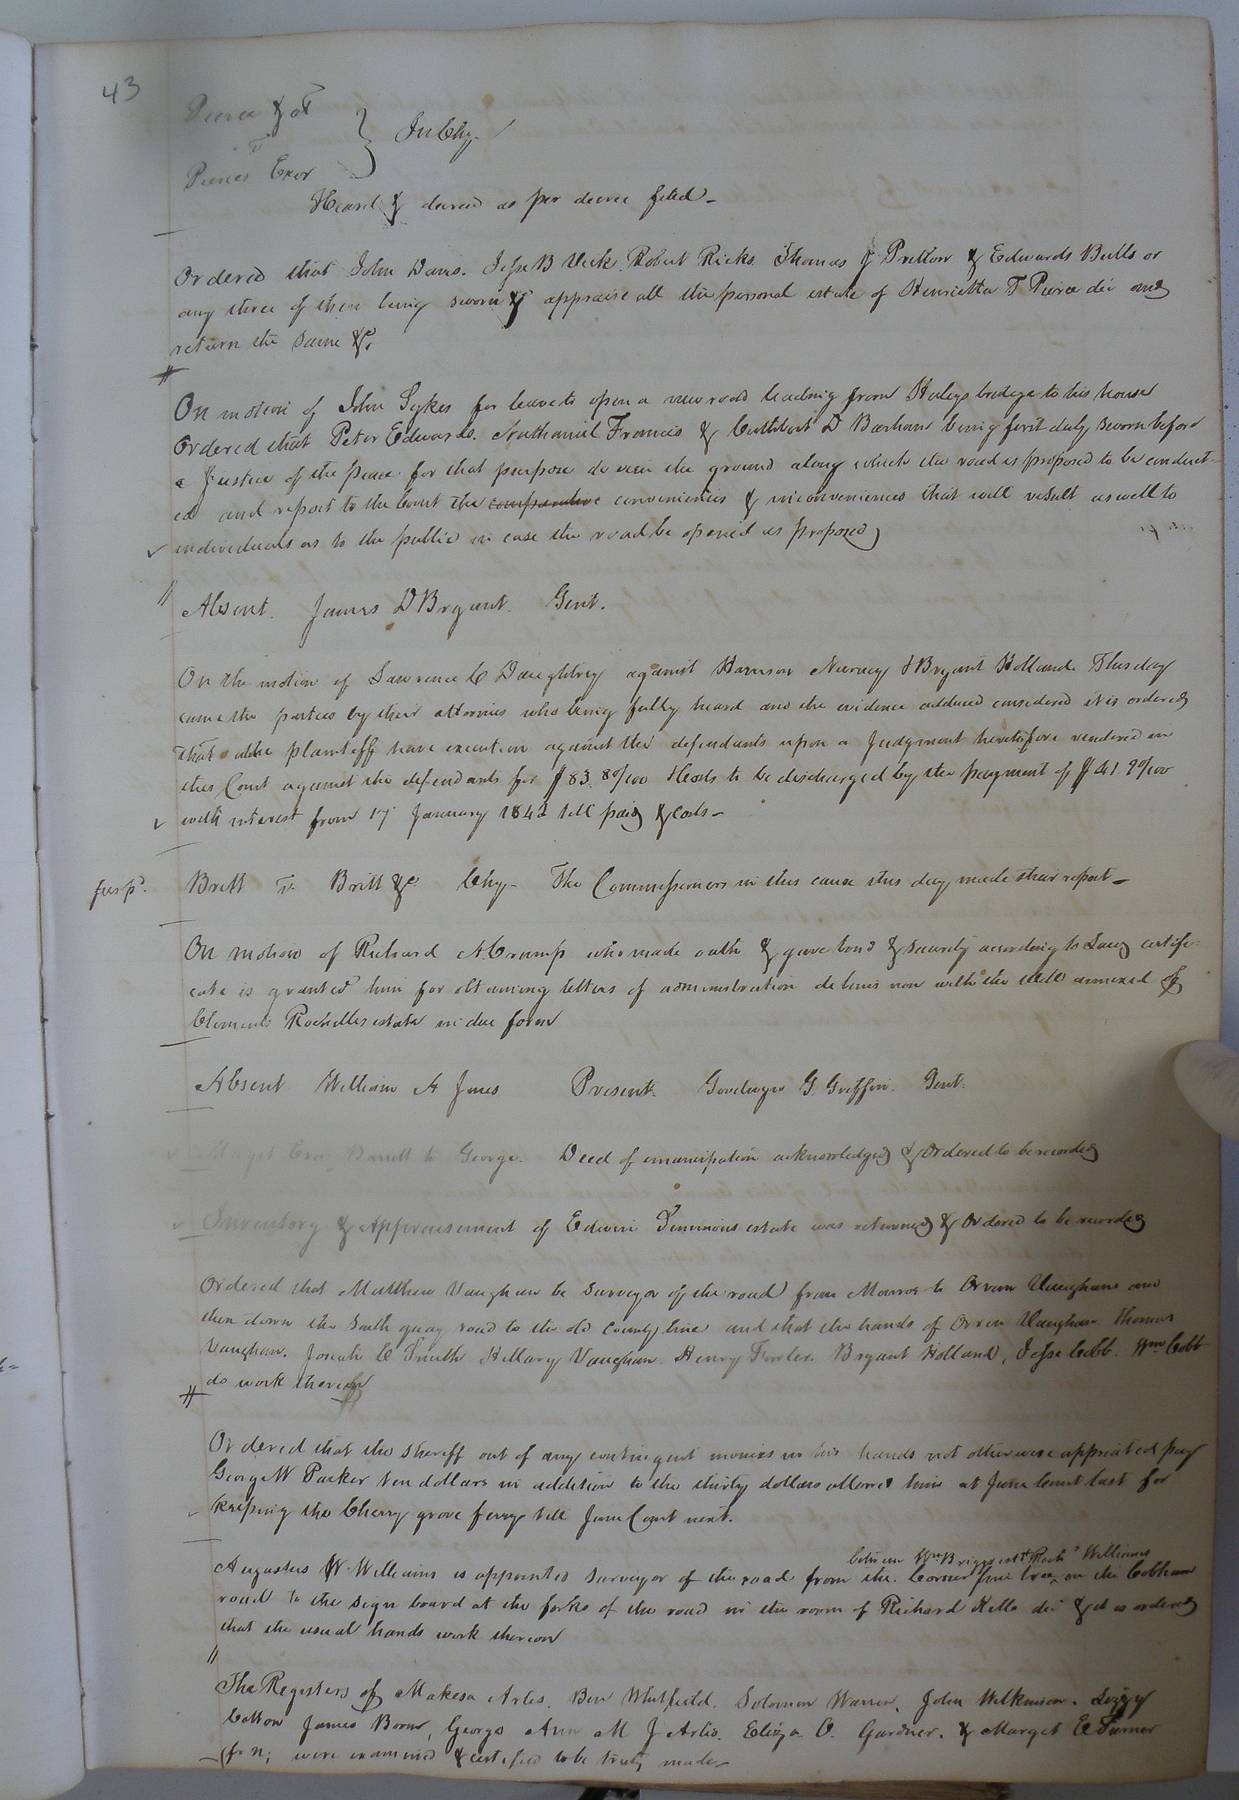 43
Pierce & ot
v
Pierces Exor
In Chy.
Heard & decreed as per decree filed
Ordered that John Davis. Robert Ricks. Thomas J Pretlow & Edwards Butts or
any three of them being sworn & appraise all the personal estate of Henrietta T Pierce dec and
return the same &c.
On motion of John Sykes for leave to open a new road leading from Haleys bridge to his house
Ordered that Peter Edwards. Nathaniel Francis & Cuthbert D Barham being first duly sworn before
a Justice of the peace for that purpose do view the ground along which the road is proposed to be conduct-
ed and report to the Court the comparative conveniencies & inconveniences that will result as well to
individuals as to the public in case the road be opened as proposed
Absent. James D Bryant. Gent.
On the motion of Lawrence C Daughtrey against Harrison & Bryant Holland This day
came the parties by their attornies who being fully heard and the evidence adduced considered it is ordered
that the plaintiff have execution against the defendants upon a Judgment heretofore rendered in
this Court against the defendants for $83. 80/100 & costs to be discharged by the payment of $41. 90/100
with interest from 17 January 1842 till paid & costs
Britt v. Britt &c Chy- The Commissioners in this cause this day made their report
On motion of Richard A Crump who made oath & gave bond & security according to Law certifi-
cate is granted him for obtaining letters of administration de bonis non with the will annexed of
Clements Rochelles estate in due form
Absent William A Jones Present. Goodwyn G. Griffin. Gent.
Exor Barrett to George. Deed of emancipation acknowledged & Ordered to be recorded
Inventory & Appraisement of Edwin Simmons estate was returned & Ordered to be recorded
Ordered that Matthew Vaughan be surveyor of the road from Monroe to Orren Vaughans and
then down the South quay road to the old County line and that the hands of Orren Vaughan Thomas
Vaughan. Josiah C Smith Hillary Vaughan. Henry Fowler. Bryant Holland, Jesse Cobb. Wm Cobb
do work thereon
Ordered that the sheriff out of any contingent monies in his hands not otherwise appriated pay
George W Parker ten dollars in addition to the thirty dollars allowed him at June Court last for
keeping the Cherry grove ferry till June Court next.
between Wm Briggs est & Williams
Augustus W Williams is appointed surveyor of the road from the Corner pine tree on the Cobham
road to the sign board at the forks of the road in the room of Richard Kello dec & it is ordered
that the usual hands work thereon
The Registers of Makesa Artis. Ben Whitfield. Solomon Warren. John Wilkinson. Lizzy
Cotton James Boone, George Ann M J Artis. Eliza O. Gardner. & Marget E Turner
(f. n; were examined & certified to be truly made